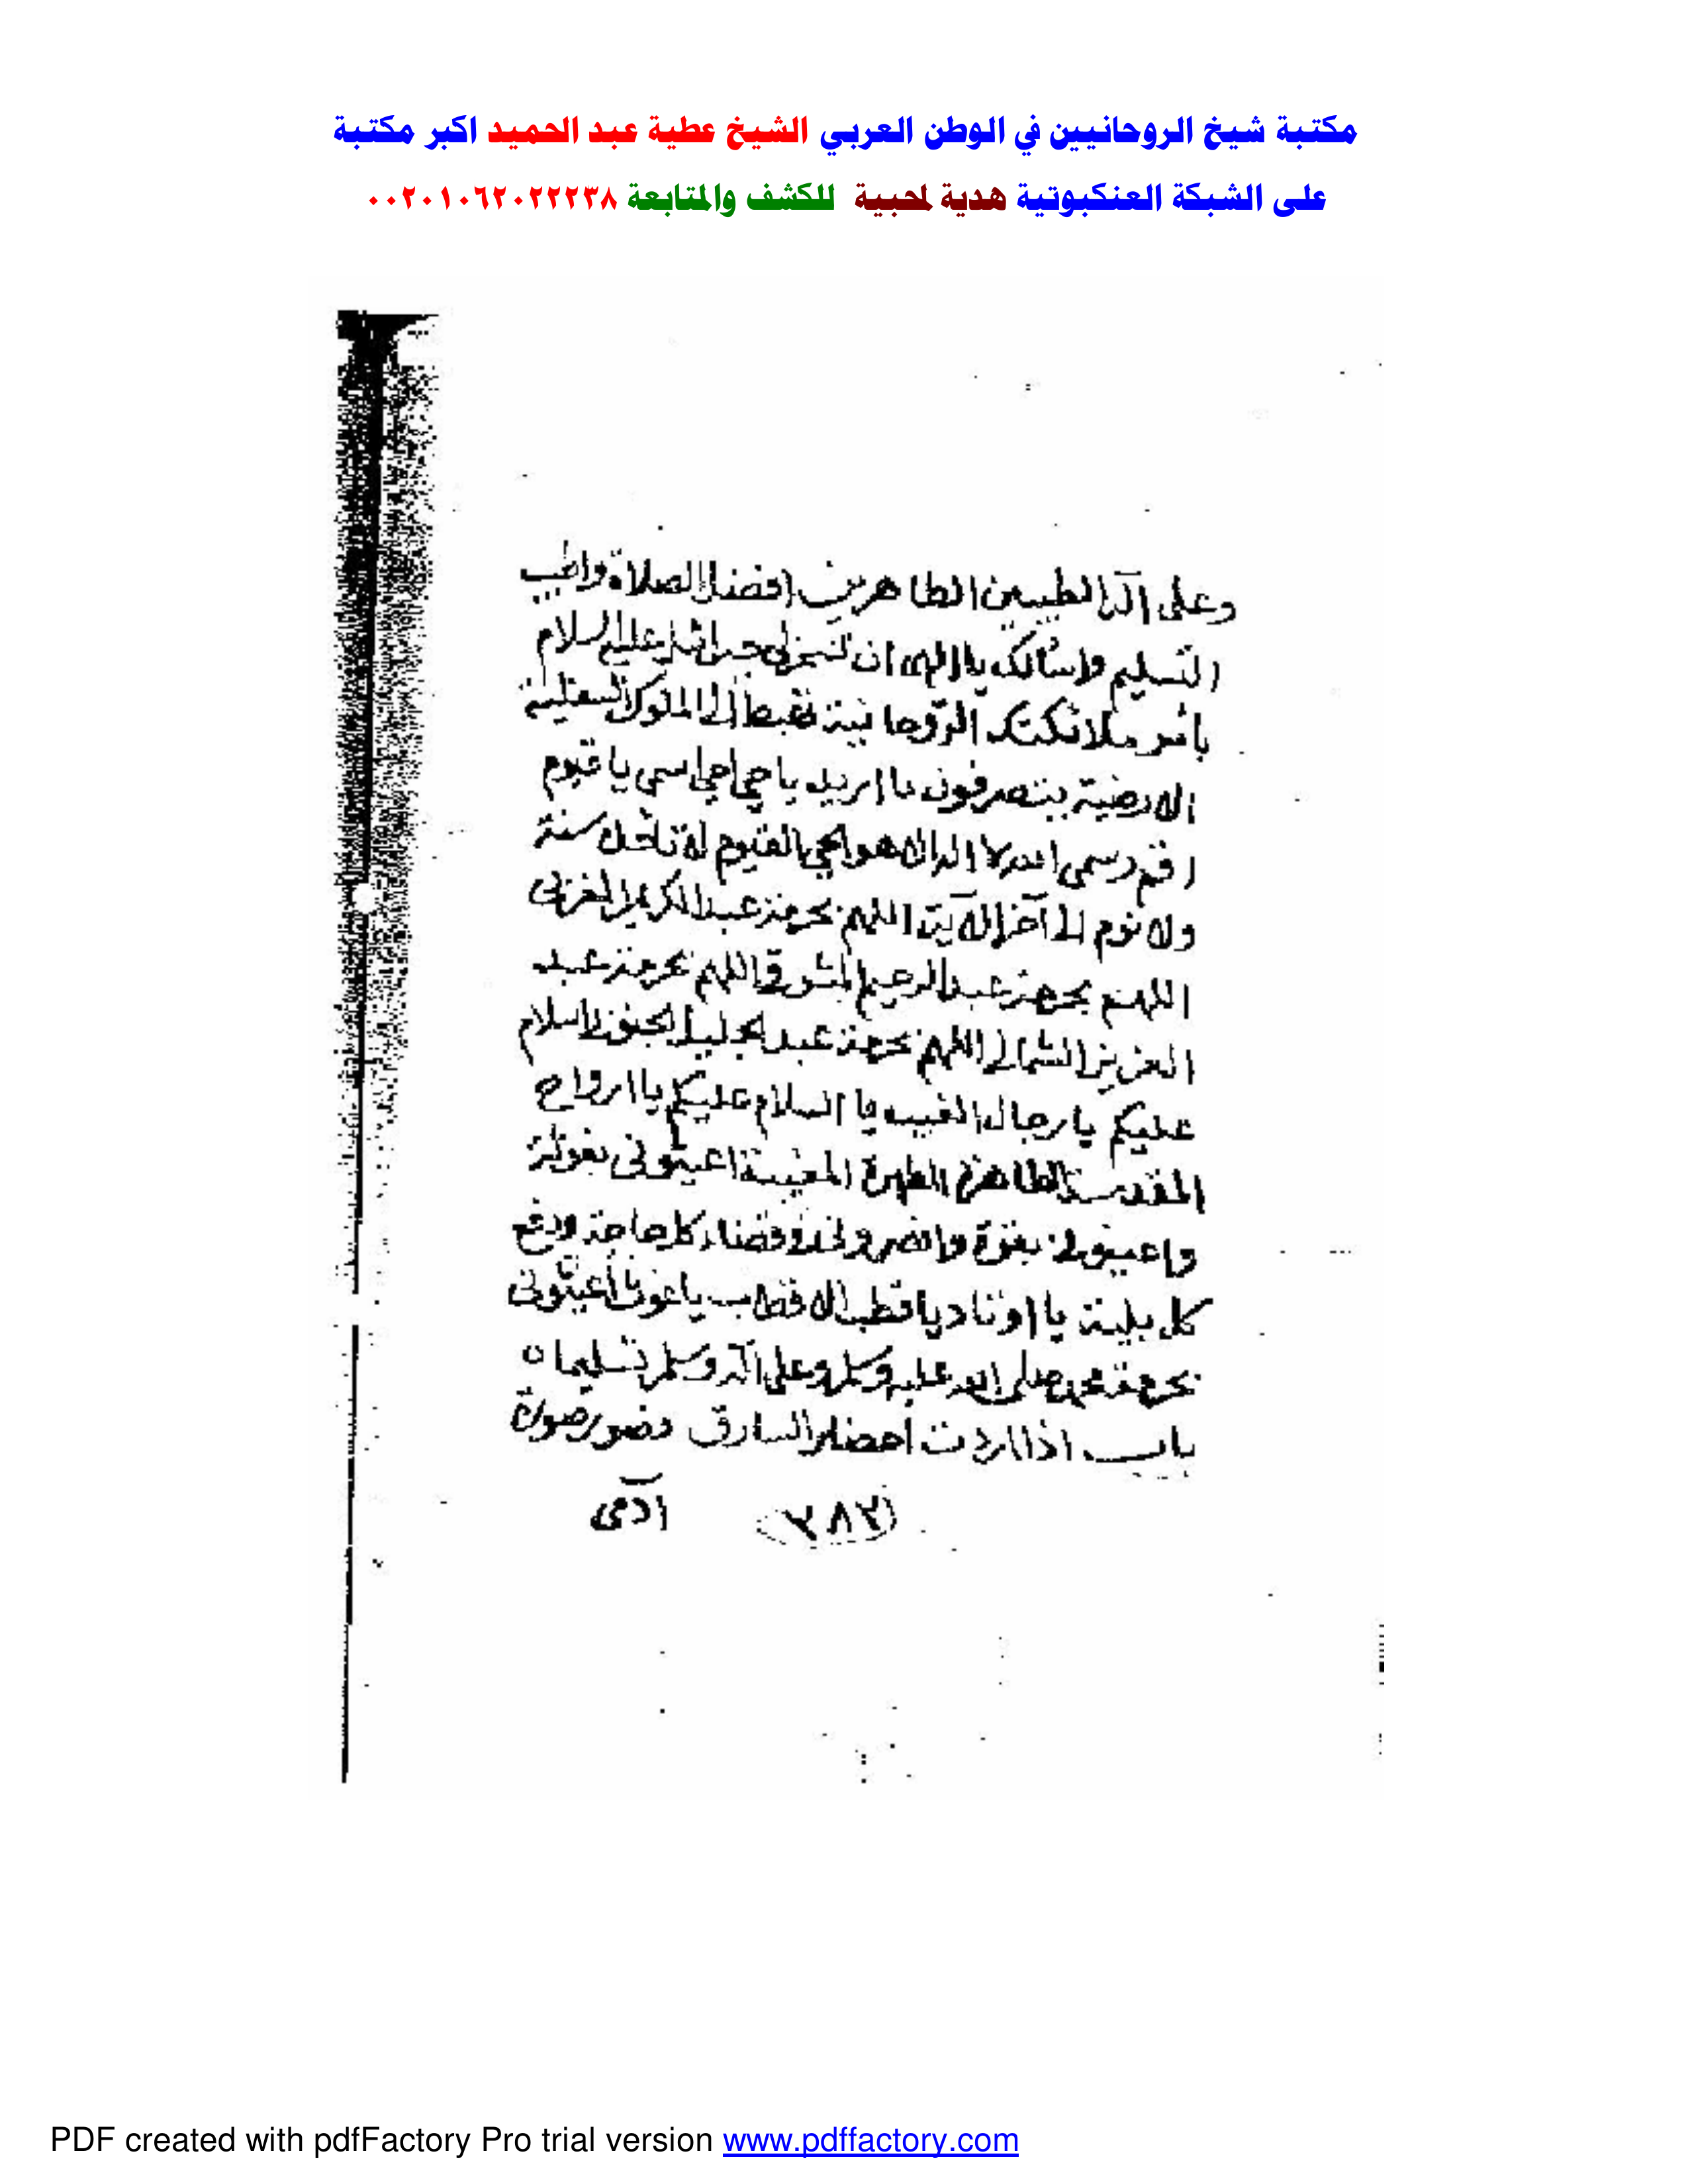 مكتبة شيخ الروحانيين في الوطن العربي الشيخ عطية عبد الحميد اكبر مكتبة
على الشبكة العنكبوتية هدية لمحبية للكشف والمتابعة ٠٠٢٠١٠٦٢٠٢٢٢٣٨
وعلى آله الطيبين الطاهرين افضل الصلاة واطيب
التسليم واسالك يا الهى ان تسخر لى جبرائيل عليه السلام
ملائكتك الروحانية الى الملوك السفلية
الارضية يتصرفون ما اريد يا حى يا قيوم
الله لا اله الا هو الحى القيوم لا تاخذه سنة
ولا نوم الى آخر الآية اللهم بحرمة عبد الكريم الغربى
اللهم بحرمة عبد الرحيم المشرقى اللهم بحرمة عبد
العزيز الشمالى اللهم بحرمة عبد الجليل السلام
عليكم يا رجال الغيب السلام عليكم يا ارواح
المقدسة الطاهرة المطهرة اغيثونى بغوثة
واعينونى وقضاء كل حاجة ودفع
كل بلية يا اوتاد يا قطب الاقطاب يا غوث اغيثونى
بحرمة محمد صلى الله عليه وسلم وعلى آله وسلم تسليما
باب اذا اردت احضار السارق صورة
(٣٨٣) آدمى
PDF created with pdfFactory Pro trial version www.pdffactory.com